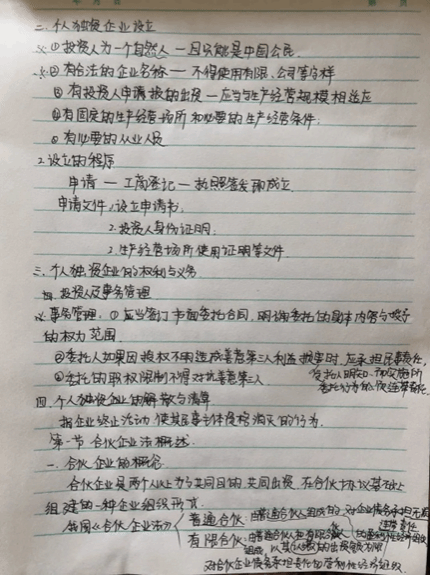 二、个人独资企业设立
①投资人为一个自然人 — 且只能是中国公民.
②有合法的企业名称 — 不得使用有限、公司等字样
③有投资人申请报的出资 — 应当与生产经营规模相适应
④有固定的生产经营场所和必要的生产经营条件.
⑤有必要的从业人员
2.设立的程序
申请 — 工商登记 — 执照签发 成立
申请文件:1.设立申请书.
2.投资人身份证明.
3.生产经营场所使用证明等文件
三、个人独资企业的权利与义务
投资人及事务管理
事务管理:①应当签订书面委托合同,明确委托的具体内容与授予
的权力范围.
②委托人如果因授权不明造成善意第三人利益损害时,应承担民事责任,
③委托的职权限制不得对抗善意第三人.
四、个人独资企业的解散与清算
指企业终止活动,使其民事主体资格消灭的行为.
第一节 合伙企业法概述.
一、合伙企业的概念
合伙企业是两个人以上为了共同目的,共同出资,在合伙协议基础上
组建的一种企业组织形式.
我国《合伙企业法》
普通合伙:由普通合伙人组成的,对企业债务承担无限
连带责任
有限合伙:由普通合伙人和有限
以其认缴的出资额为限
对合伙企业债务承担责任的营利性经济组织